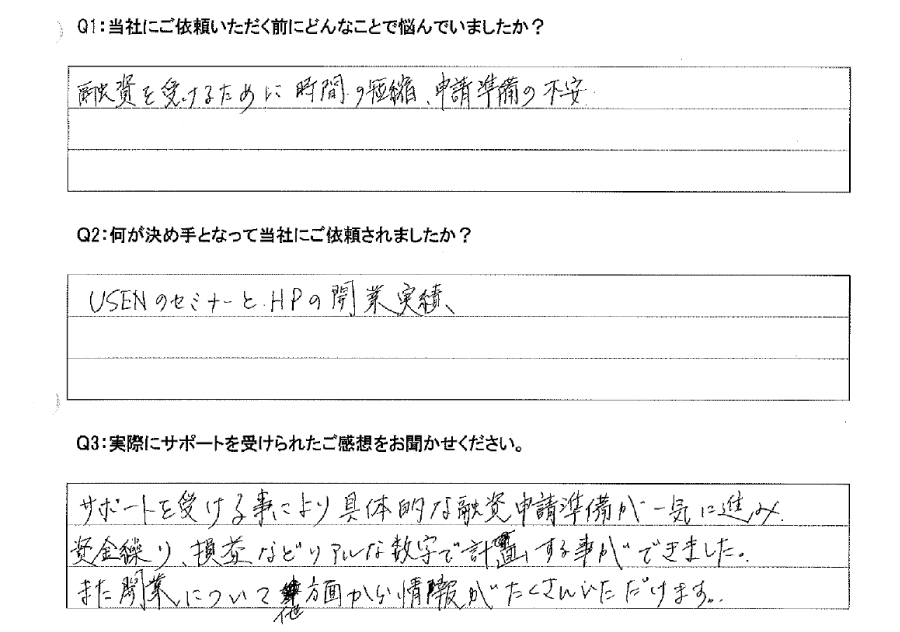 Q1:当社にご依頼いただく前にどんなことで悩んでいましたか？
融資を受けるために時間の短縮、申請準備の不安
Q2:何が決め手となって当社にご依頼されましたか？
USENのセミナーと、HPの開業実績、
Q3:実際にサポートを受けられたご感想をお聞かせください。
サポートを受ける事により具体的な融資申請準備が一気に進み、
資金繰り、損益などリアルな数字で計画する事ができました。
また開業について他方面から情報がたくさんいただけます。